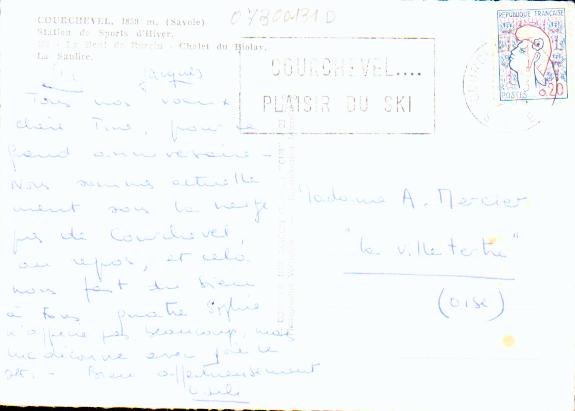 COURCHEVEL, 1850 m. (Savoie)
Station de Sports d'Hiver.
Le Dent de Burgin - Chalet du Biolay.
La Saulire.
COURCHEVEL....
PLAISIR DU SKI
RÉPUBLIQUE FRANÇAISE
POSTES 0,20
Jacques
Tous nos voeux
chère Tine, pour ce
grand anniversaire -
Nous sommes actuelle
ment sous la neige
près de Courchevel,
au repos, et cela
nous fait du bien
à tous quatre Sophie
n'apprécie pas beaucoup, mais
Bien affectueusement
Madame A. Mercier
"La Villetertre"
(Oise)